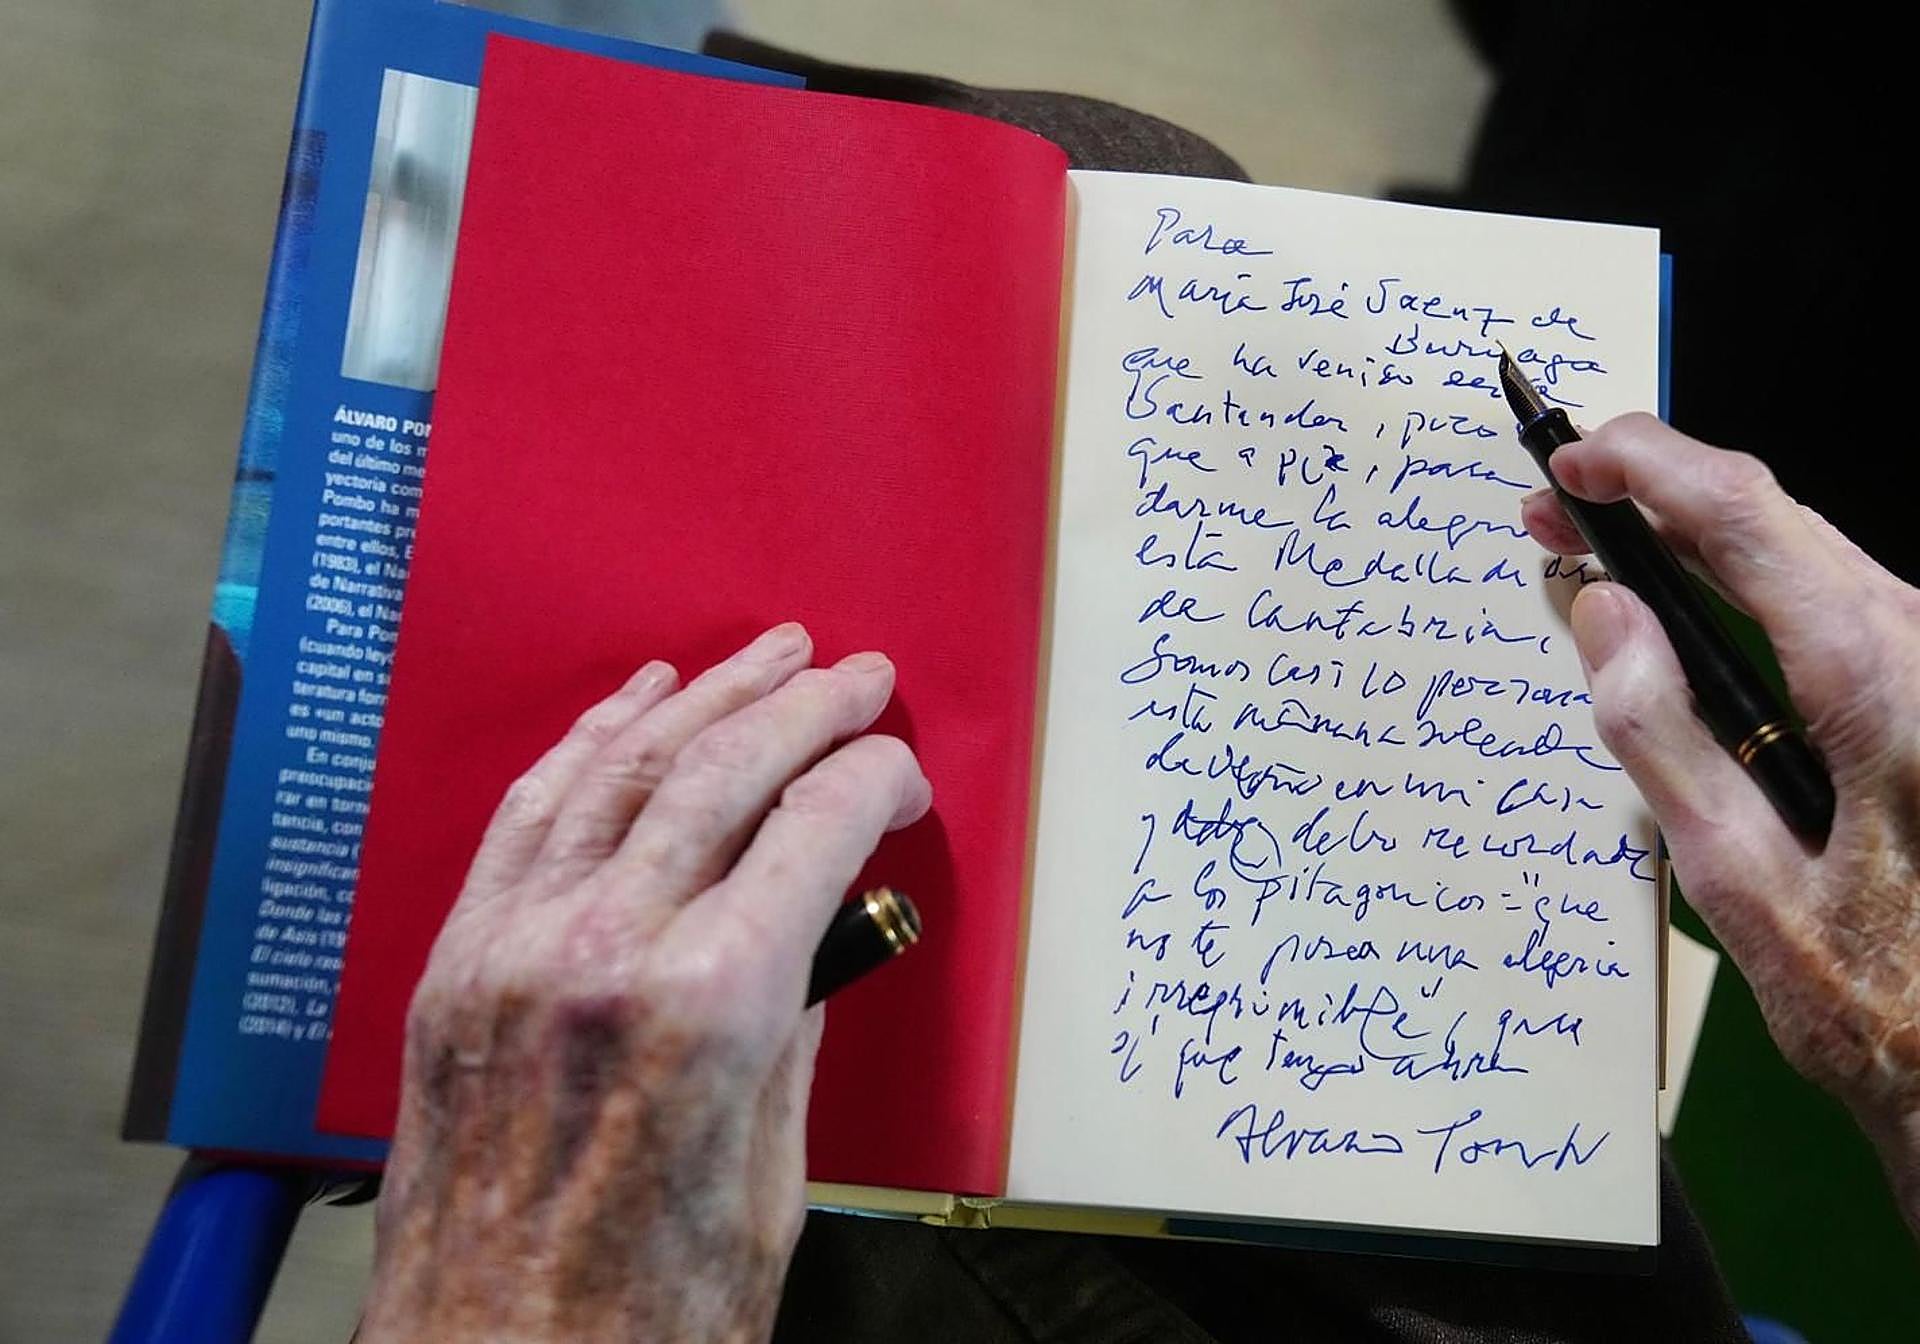 ÁLVARO POM
uno de los m
del último me
yectoria com
Pombo ha m
portantes pre
entre ellos, E
(1983), el Na
de Narrativa
(2006), el Na
Para Pom
(cuando leyó
capital en su
teratura form
es «un acto
uno mismo.
En conju
preocupaci
rar en torn
tancia, con
sustancia (
insignifican
ligación, co
Donde las
de Asís (19
El cielo ras
sumación,
(2012), La
(2014) y El
Para
María José Saenz de
Buruaga
que ha venido
Santander, poco
que a pie, para
darme la alegría
esta Medalla de
de Cantabria,
Somos casi lo
esta mañana soleada
de en mi casa
y debo recordarte
a los pitagoricos = "que
no te posea una alegria
irreprimible", que
es que tengo ahora
Alvaro Pombo